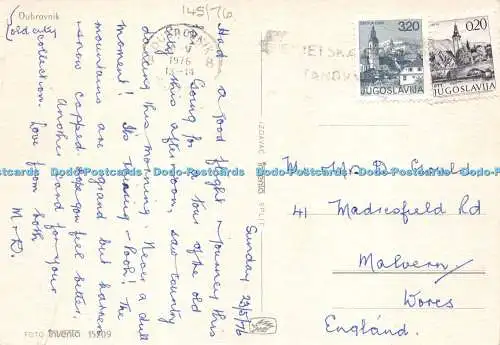 Dubrovnik
(old city
145/76
DUBROVNIK
V
1976
13-14
8
3,20
JUGOSLAVIJA
0,20
JUGOSLAVIJA
Sunday 23/5/76
Had a good flight & journey this
Going for a tour of the old
city this afternoon, saw country
dancing this morning. Never a dull
moment! It's thundering - Pooh! The
mountains are grand but barren
& snow capped. Hope you feel better.
Another card for your
collection. Love from both
M & D.
41 Madresfield Rd
Malvern
Worcs
England.
FOTO Inventa 15209
Postcards Dodo-Postcards Dodo-Postcards Dodo-Postcards Dodo-Postcards Dodo-Postcards